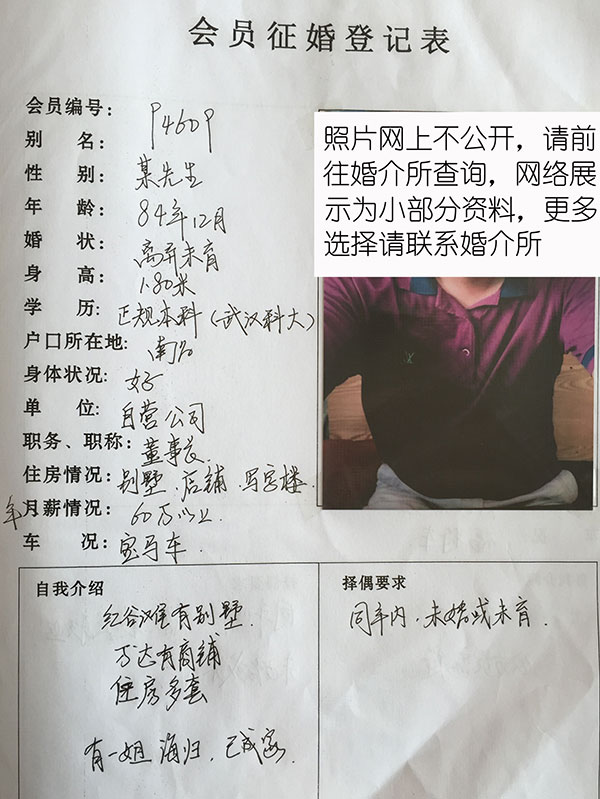 会员征婚登记表
会员编号: P460P
别 名:
性 别: 某先生
年 龄: 84年12月
婚 状: 离异未育
身 高: 1.80米
学 历: 正规本科(武汉科大)
户口所在地: 南昌
身体状况: 好
单 位: 自营公司
职务、职称: 董事长
住房情况: 别墅.店铺.写字楼
年月薪情况: 60万以上
车 况: 宝马车.
照片网上不公开，请前
往婚介所查询，网络展
示为小部分资料，更多
选择请联系婚介所
自我介绍
红谷滩有别墅.
万达有商铺
住房多套
有一姐 海归，已成家.
择偶要求
同年内，未婚或未育.